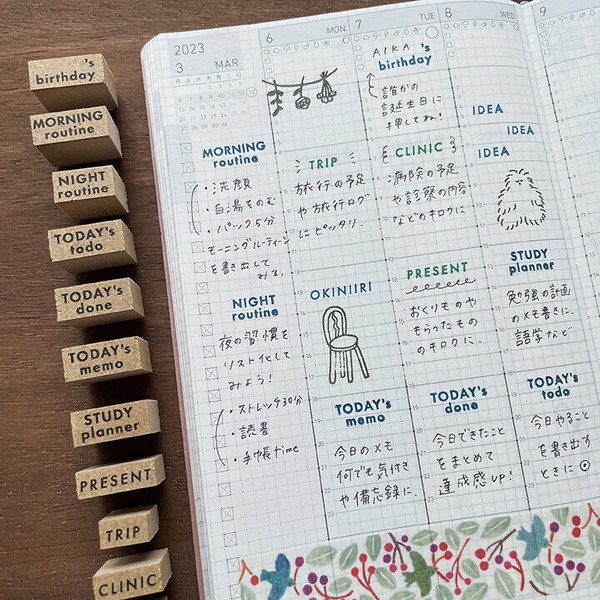 's
birthday
MORNING
routine
NIGHT
routine
TODAY's
todo
TODAY's
done
TODAY's
memo
STUDY
planner
PRESENT
TRIP
CLINIC
2023
3 MAR
6 MON
7 TUE
8 WED
9
AIKA 's
birthday
誰かの
誕生日に
押してね!
IDEA
IDEA
IDEA
MORNING
routine
・洗顔
・白湯をのむ
・パック5分
モーニングルーティーン
を書き出して
みる.
TRIP
旅行の予定
や旅行ログ
にピッタリ.
CLINIC
病院の予定
や診察の内容
などのキロクに
NIGHT
routine
夜の習慣を
リスト化して
みよう!
・ストレッチ30分
・読書
・手帳time
OKINIIRI
PRESENT
おくりものや
もらったもの
のキロクに.
STUDY
planner
勉強の計画
のメモ書きに.
語学など
TODAY's
memo
今日のメモ
何でも気付き
や備忘録に.
TODAY's
done
今日できたこと
をまとめて
達成感UP!
TODAY's
todo
今日やること
を書き出す
ときに◎